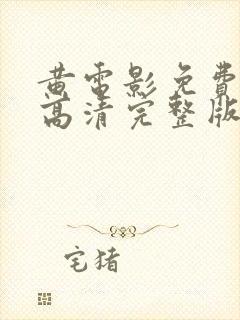 黄雷影免费
高清完整版
宅猪